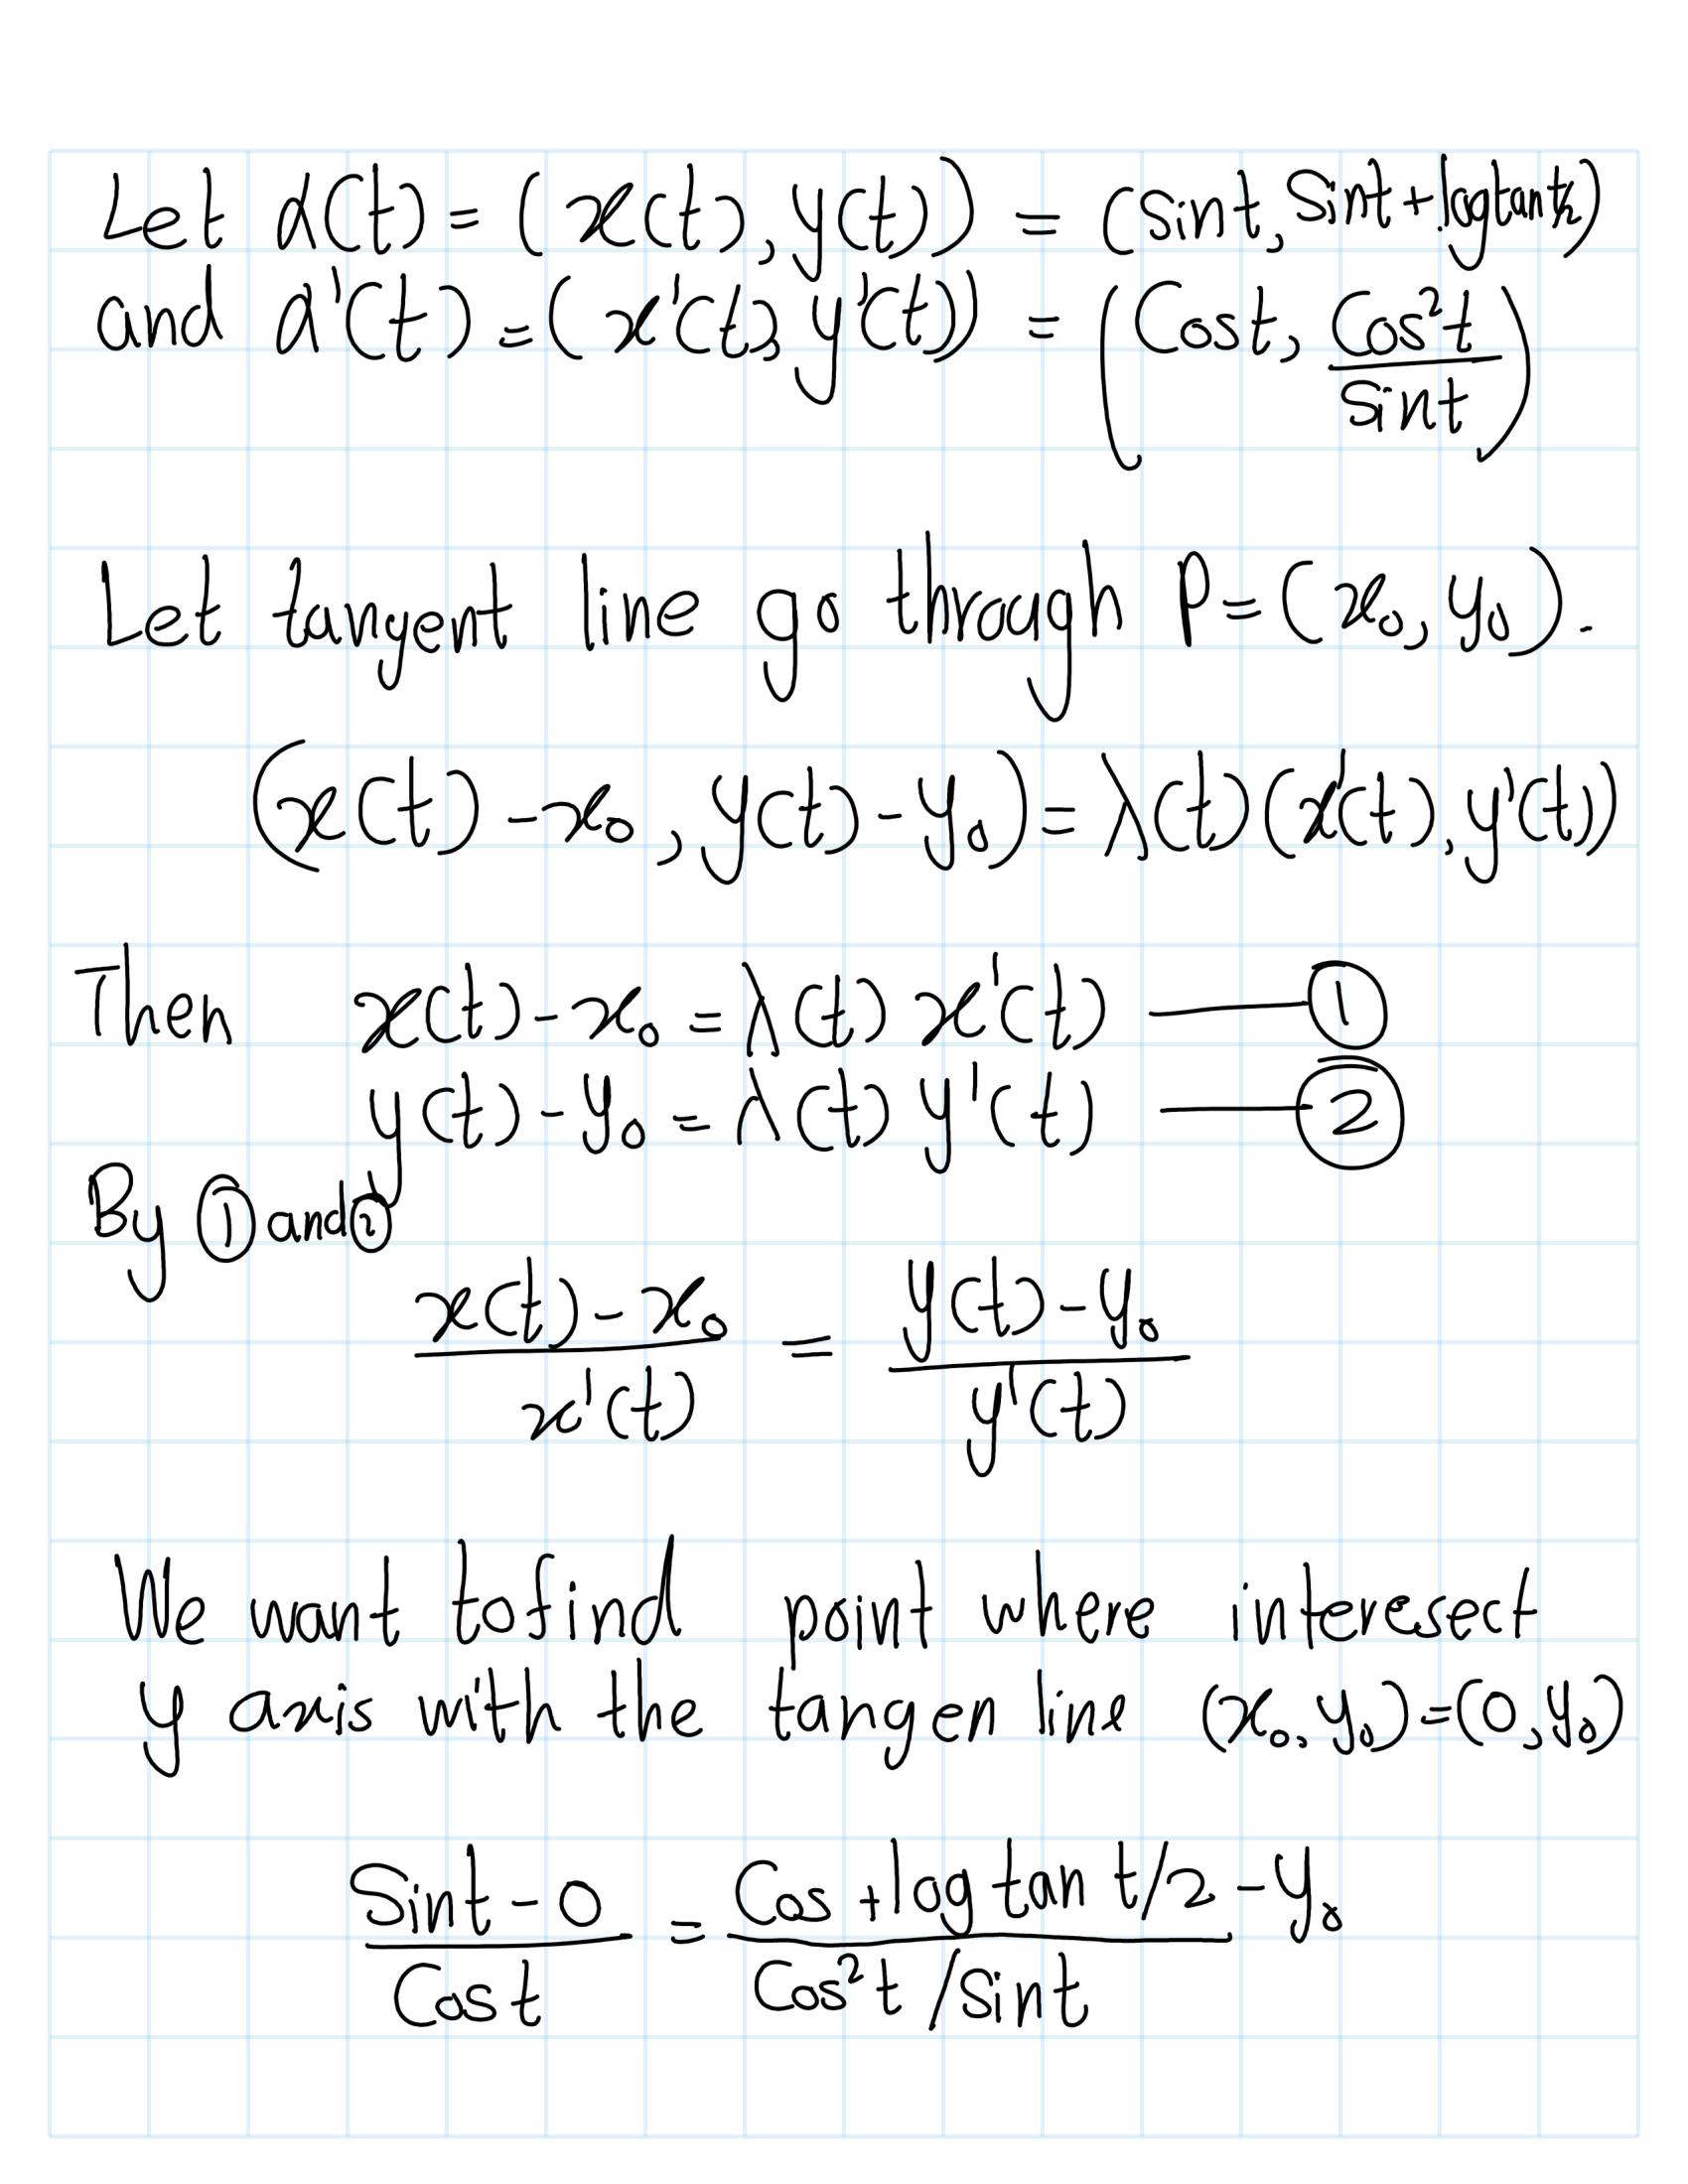 Let α(t) = (x(t), y(t)) = (sint, sint + log tan t/2)
and α'(t) = (x'(t), y'(t)) = (Cost, Cos²t / sint)
Let tangent line go through P = (x₀, y₀).
(x(t) - x₀, y(t) - y₀) = λ(t) (x'(t), y'(t))
Then x(t) - x₀ = λ(t) x'(t) —— ①
y(t) - y₀ = λ(t) y'(t) —— ②
By ① and ②
(x(t) - x₀) / x'(t) = (y(t) - y₀) / y'(t)
We want to find point where interesect
y axis with the tangen line (x₀, y₀) = (0, y₀)
(Sint - 0) / Cost = (Cos + log tan t/2 - y₀) / (Cos²t / sint)